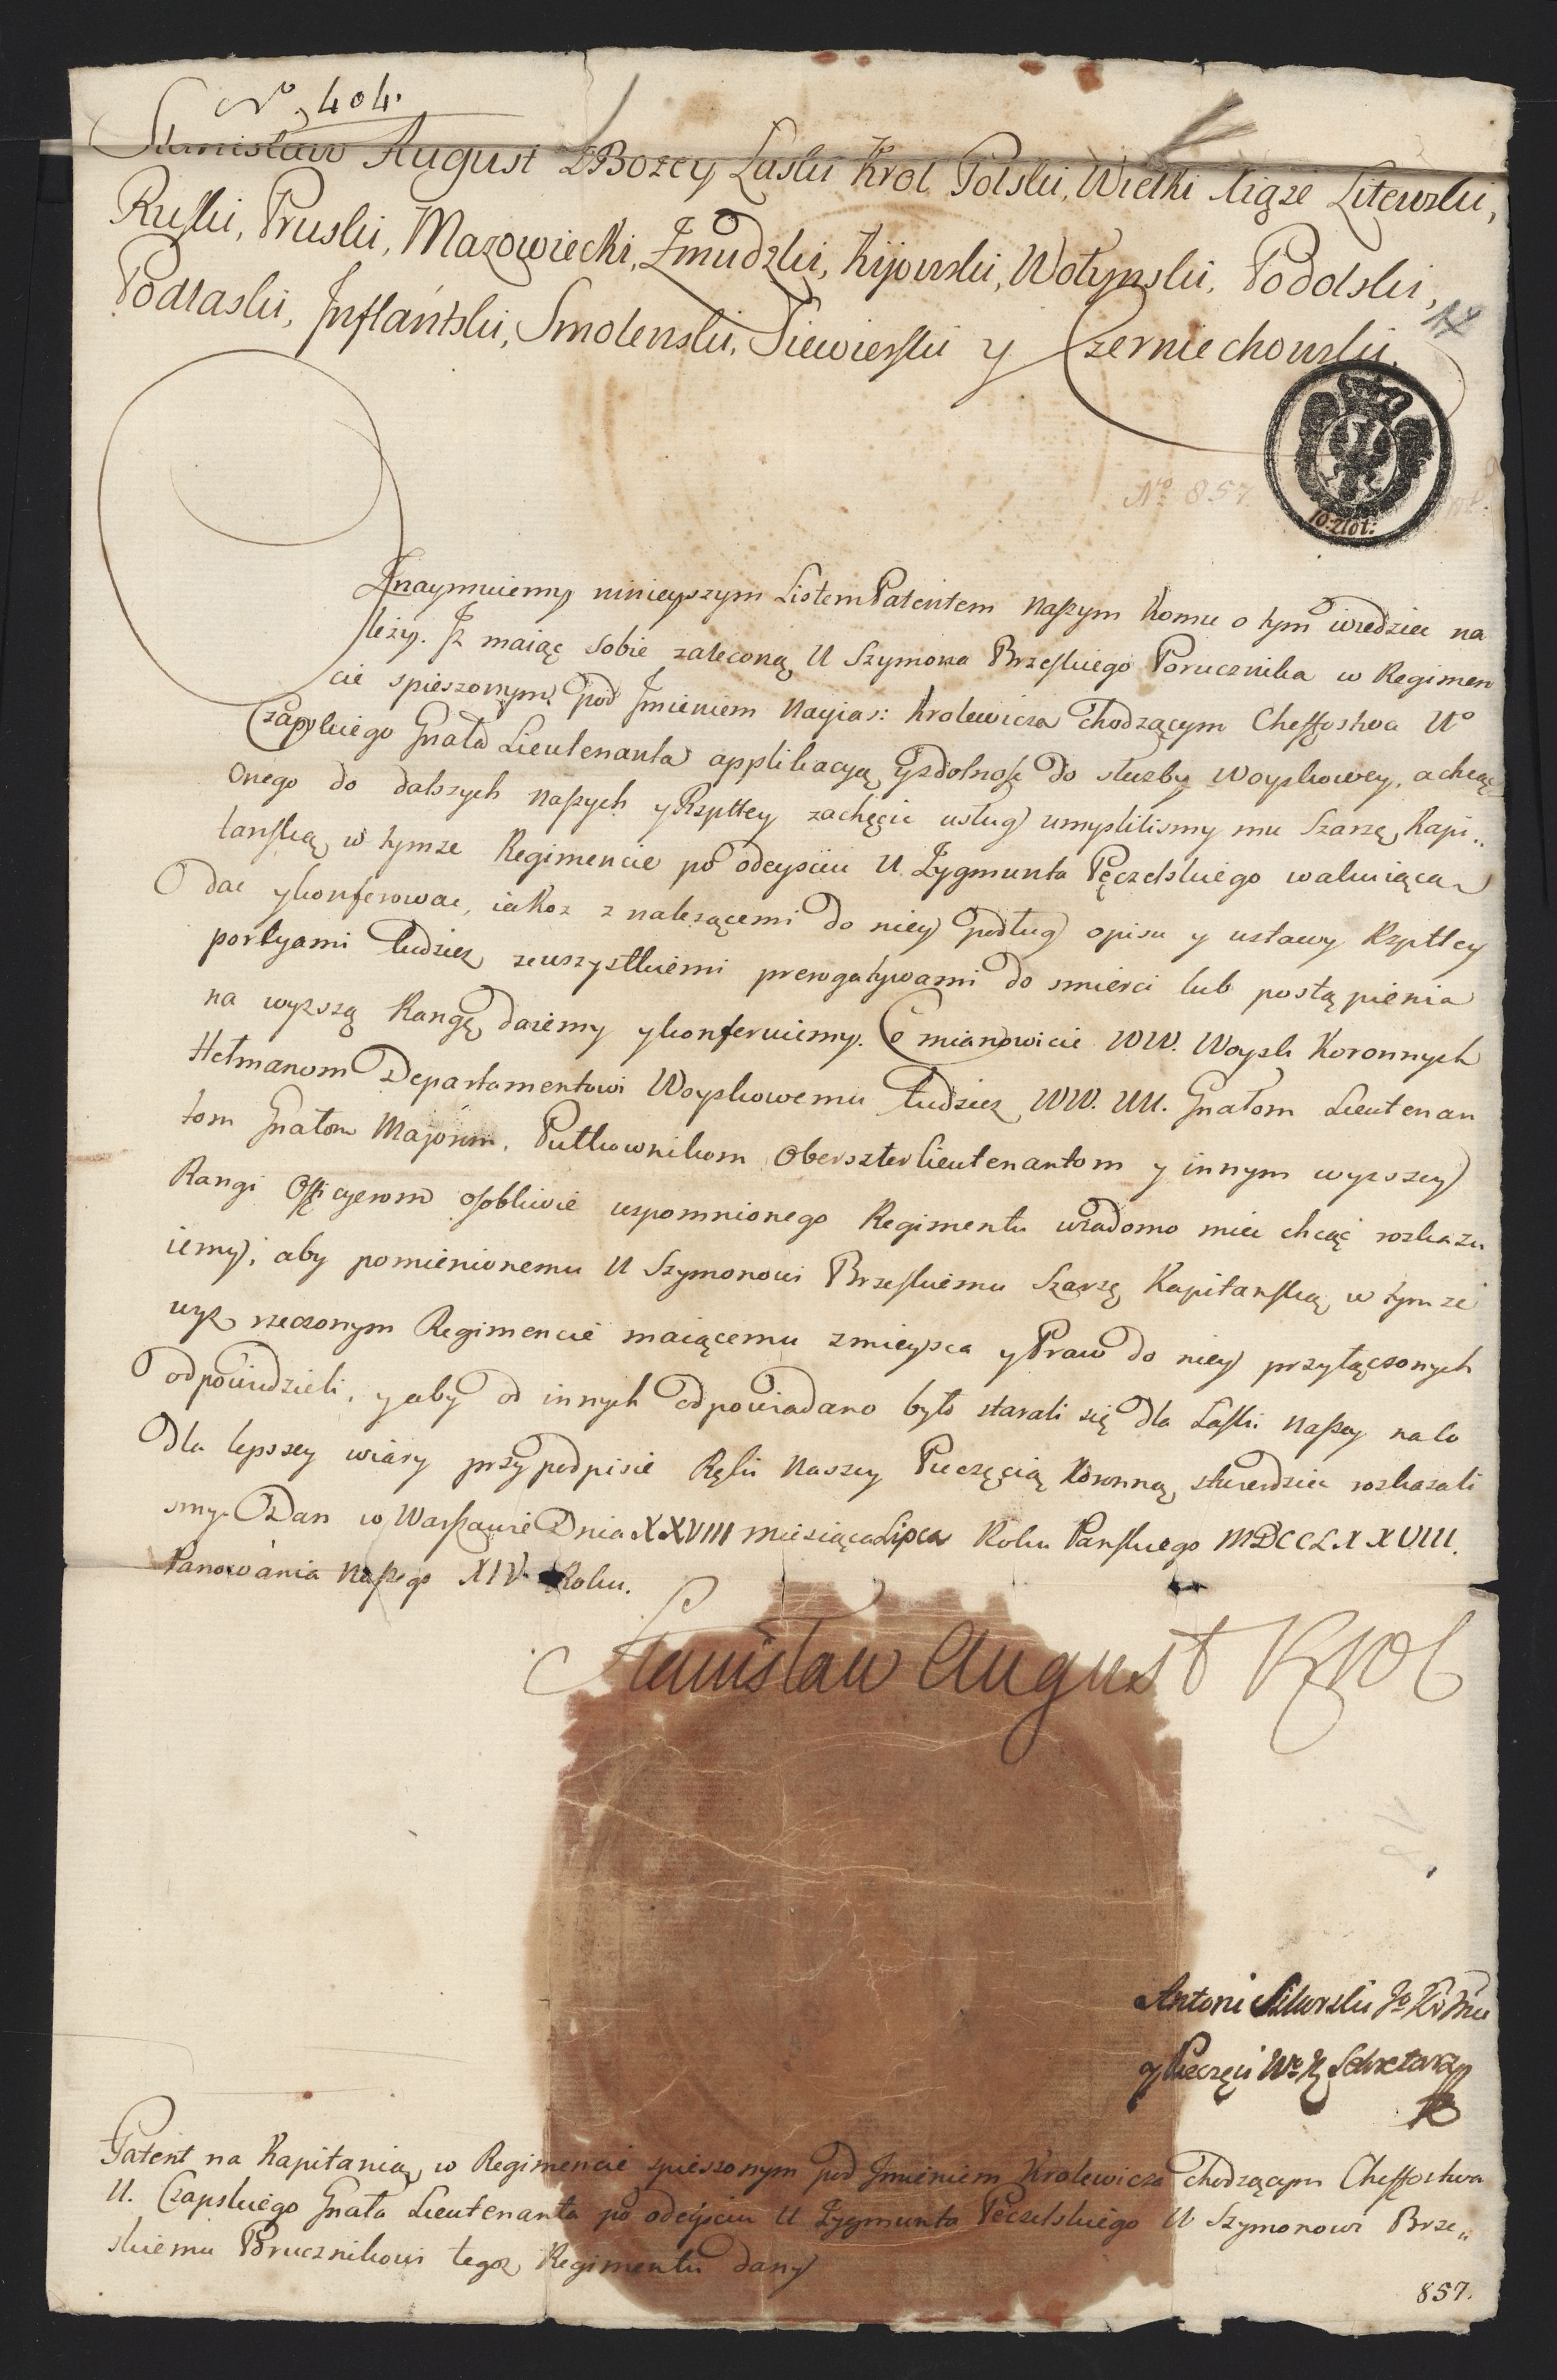 No. 404.
Stanisław August z Bozey Łaski Krol Polski, Wielki Xiąże Litewski,
Ruski, Pruski, Mazowiecki, Żmudzki, Kijowski, Wołynski, Podolski,
Podlaski, Inflantski, Smolenski, Siewierski y Czerniechowski.
10: złot:
No 857
Znaymuiemy ninieyszym Listem Patentem naszym komu o tym wiedziec na
lezy. Iz maiąc sobie zaleconą U Szymona Brzeskiego Porucznika w Regimen
cie spieszonym pod Imieniem Nayias: Krolewicza chodzącym Cheffostwa Uo
Czapskiego Gnała Lieutenanta applikacyą y zdolnosc do służby woyskowey, a chcąc
onego do dalszych naszych y Rzpltey zachęcic usług umyslilismy mu Szarzę Kapi„
tanską w tymze Regimencie po odeysciu U. Zygmunta Pęczelskiego wakuiącą
dac y konferowac, iakoz z nalezącemi do niey podług opisu y ustawy Rzpltey
portyami tudziez zewszystkiemi prerogatywami do smierci lub postąpienia
na wyzszą Rangę daiemy y konferuiemy. Co mianowicie WW. Woysk Koronnych
Hetmanom Departamentowi Woyskowemu tudziez WW. UU. Gnałom Lieutenan
tom Gnałom Majorom, Pułkownikom Oberszterlieutenantom y innym wyzszey
Rangi Officyerom osobliwie wspomnionego Regimentu wiadomo miec chcąc rozkazu
iemy, aby pomienionemu U Szymonowi Brzeskiemu Szarzę Kapitanską w tymze
wyz rzeczonym Regimencie maiącemu z mieysca y Praw do niey przyłączonych
odpowiedzieli, y aby od innych odpowiadano było starali się dla Łaski naszey na co
dla lepszey wiary przy podpisie Ręki Naszey Pieczęcią Koronną stwierdzic rozkazali
smy. Dan w Warszawie Dnia XXVIII Miesiąca Lipca Roku Panskiego MDCCLXXVIII.
Panowania Naszego XIV Roku.
Stanisław August Krol
Antoni Sikorski
y Pieczęci Sekretarz
Patent na Kapitanią w Regimencie spieszonym pod Imieniem Krolewicza chodzącym Cheffostwa
U. Czapskiego Gnała Lieutenanta po odeysciu U Zygmunta Pęczelskiego U Szymonowi Brze„
skiemu Porucznikowi tegoz Regimentu dany
857.